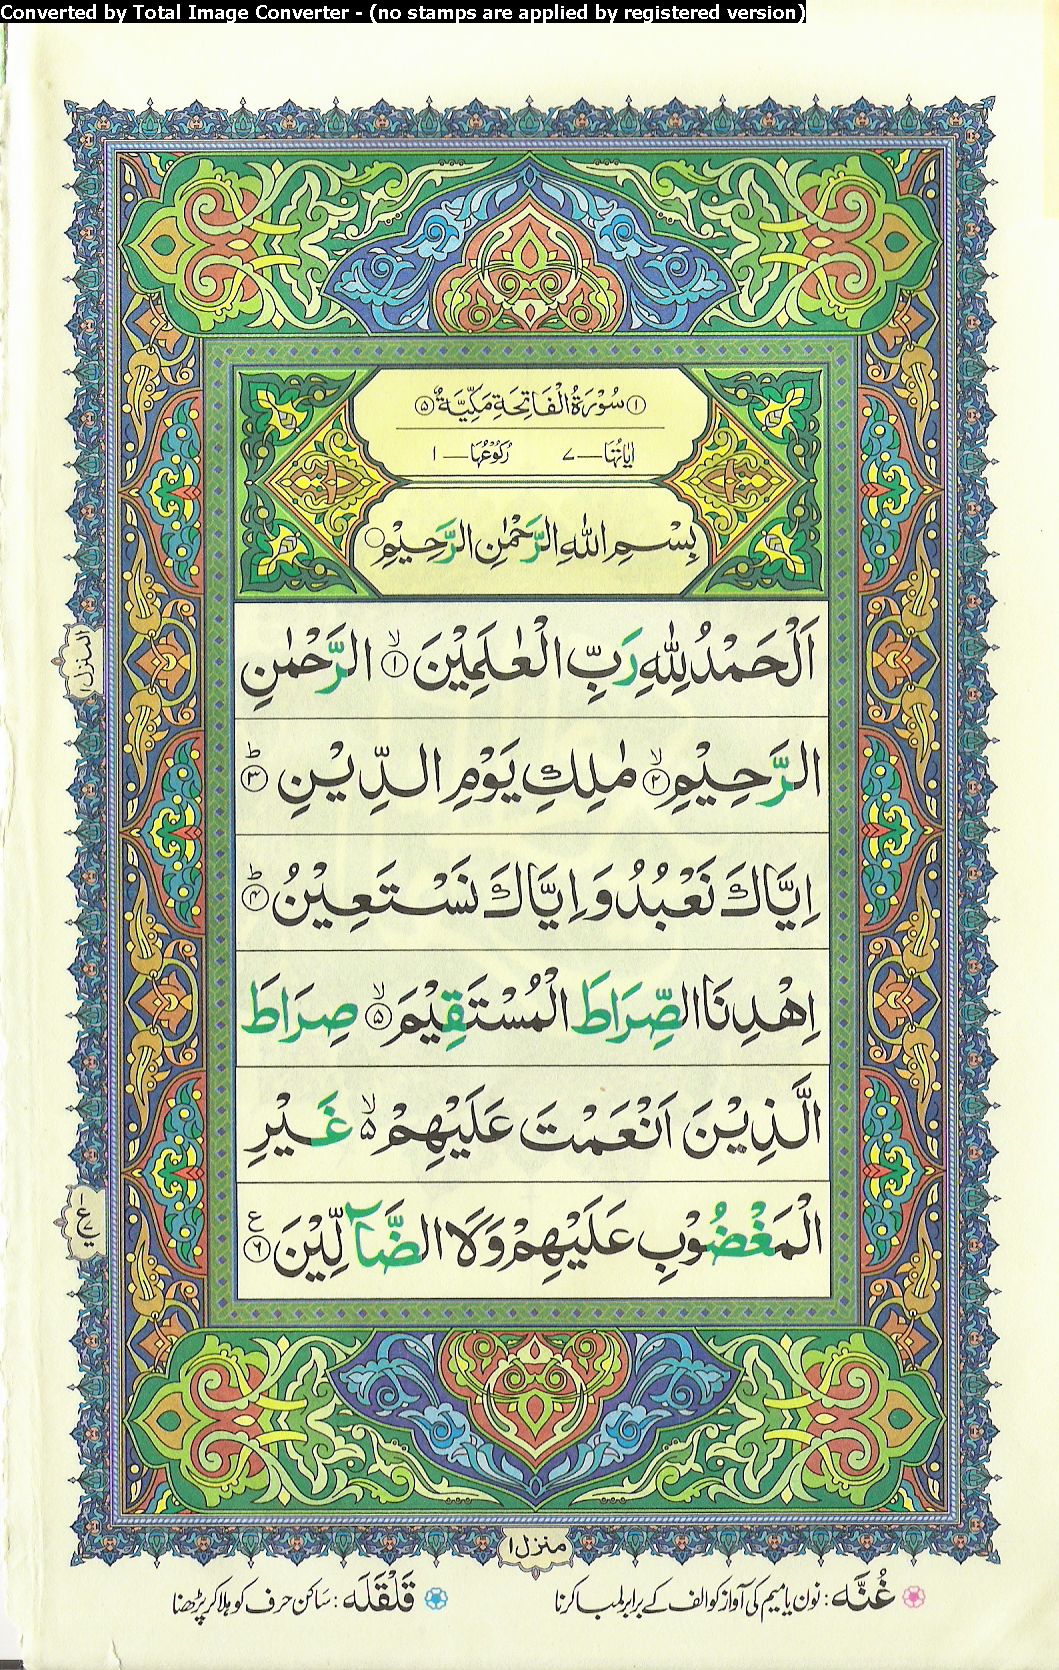 Converted by Total Image Converter - (no stamps are applied by registered version)
﴿۱﴾ سُوْرَةُ الْفَاتِحَةِ مَكِّيَّةٌ ﴿۵﴾
اٰيَاتُهَا — ۷ رُكُوْعُهَا — ۱
بِسْمِ اللّٰهِ الرَّحْمٰنِ الرَّحِيْمِ
اَلْحَمْدُ لِلّٰهِ رَبِّ الْعٰلَمِيْنَ ﴿۱﴾ۙ الرَّحْمٰنِ
الرَّحِيْمِ ﴿۲﴾ۙ مٰلِكِ يَوْمِ الدِّيْنِ ﴿۳﴾ؕ
اِيَّاكَ نَعْبُدُ وَاِيَّاكَ نَسْتَعِيْنُ ﴿۴﴾ؕ
اِهْدِنَا الصِّرَاطَ الْمُسْتَقِيْمَ ﴿۵﴾ۙ صِرَاطَ
الَّذِيْنَ اَنْعَمْتَ عَلَيْهِمْ ۙ۵ غَيْرِ
الْمَغْضُوْبِ عَلَيْهِمْ وَلَا الضَّآلِّيْنَ ﴿۶﴾ع
المنزل ۱
۱ ع ۷
منزل ۱
غُنَّه: نون یا میم کی آواز کو الف کے برابر لمبا کرنا
قَلْقَلَه: ساکن حرف کو ہلا کر پڑھنا